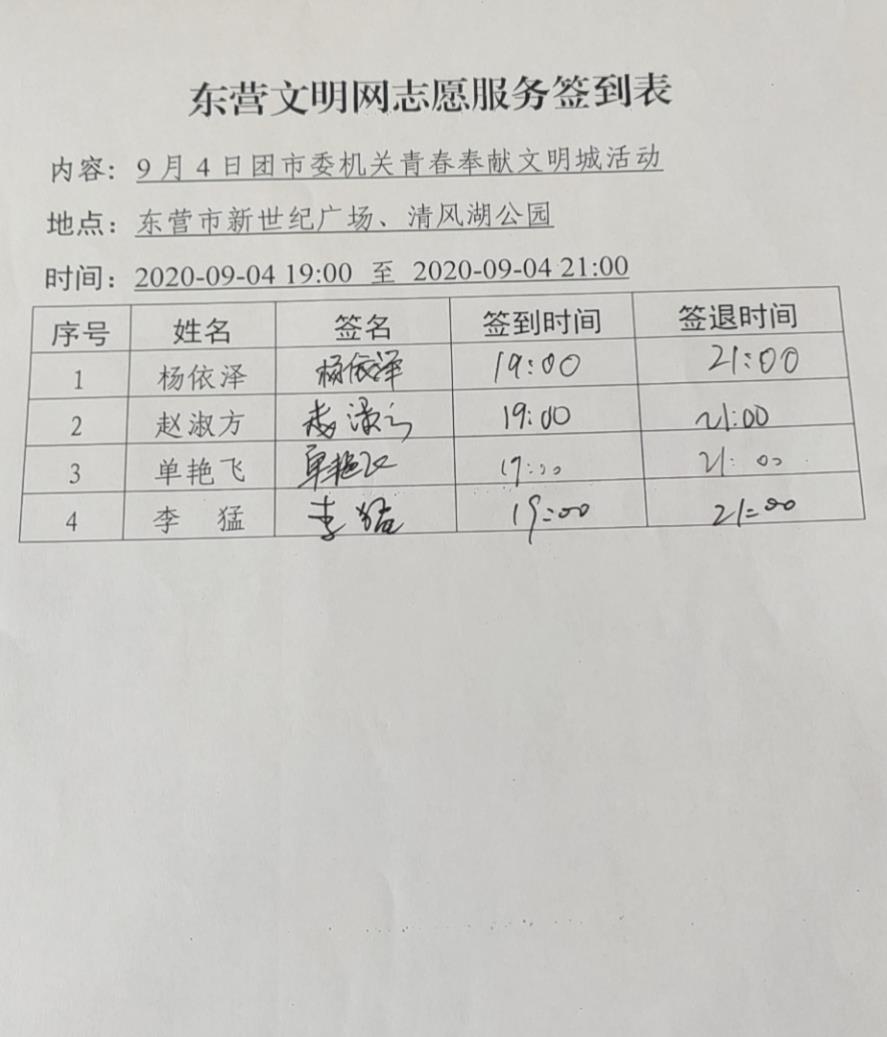 东营文明网志愿服务签到表
内容：9月4日团市委机关青春奉献文明城活动
地点：东营市新世纪广场、清风湖公园
时间：2020-09-04 19:00 至 2020-09-04 21:00
序号 姓名 签名 签到时间 签退时间
1 杨依泽 杨依泽 19:00 21:00
2 赵淑方 赵淑方 19:00 21:00
3 单艳飞 单艳飞 19:00 21:00
4 李 猛 李猛 19:00 21:00